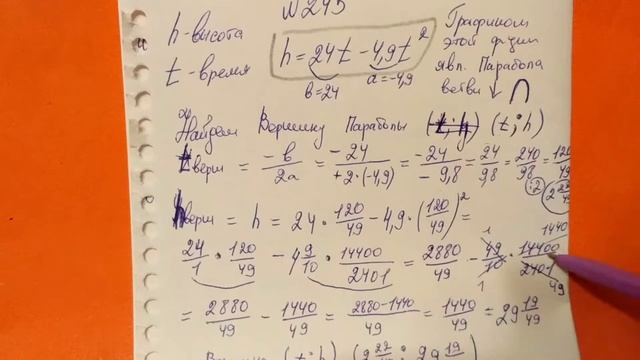 N 245
h-высота
t-время
h = 24t - 4,9t²
в=24 a=-4,9
Графиком
этой ф-ции
явл. Парабола
ветви ↓ ∩
Найдем Вершину Параболы (t; h)
t верш = -в/2a = -24/+2·(-4,9) = -24/-9,8 = 24/9,8 = 240/98 = 120/49
:2 2 22/49
h верш = h = 24 · 120/49 - 4,9 · (120/49)² =
24/1 · 120/49 - 49/10 · 14400/2401 = 2880/49 - 49/10 · 14400/2401
1 1 1440 49
= 2880/49 - 1440/49 = 2880-1440/49 = 1440/49 = 29 19/49